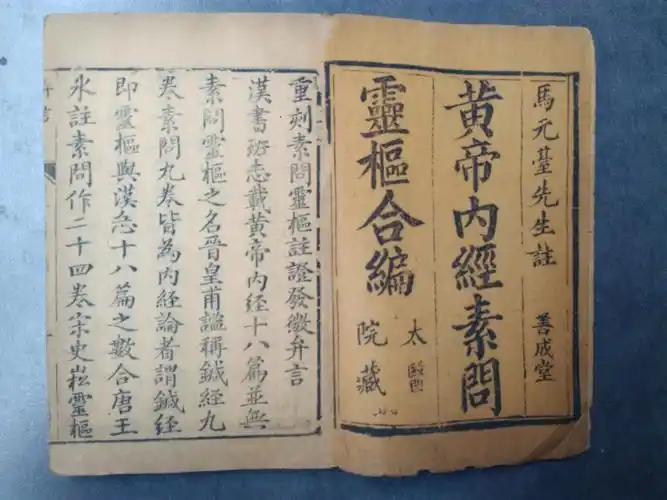 馬元臺先生註 善成堂
黃帝內經素問
靈樞合編
太醫
院藏
重刻素問靈樞註證發微弁言
漢書班志載黃帝內經十八篇並無
素問靈樞之名晉皇甫謐稱鍼經九
卷素問九卷皆為內經論者謂鍼經
即靈樞與漢志十八篇之數合唐王
氷註素問作二十四卷宋史崧靈樞